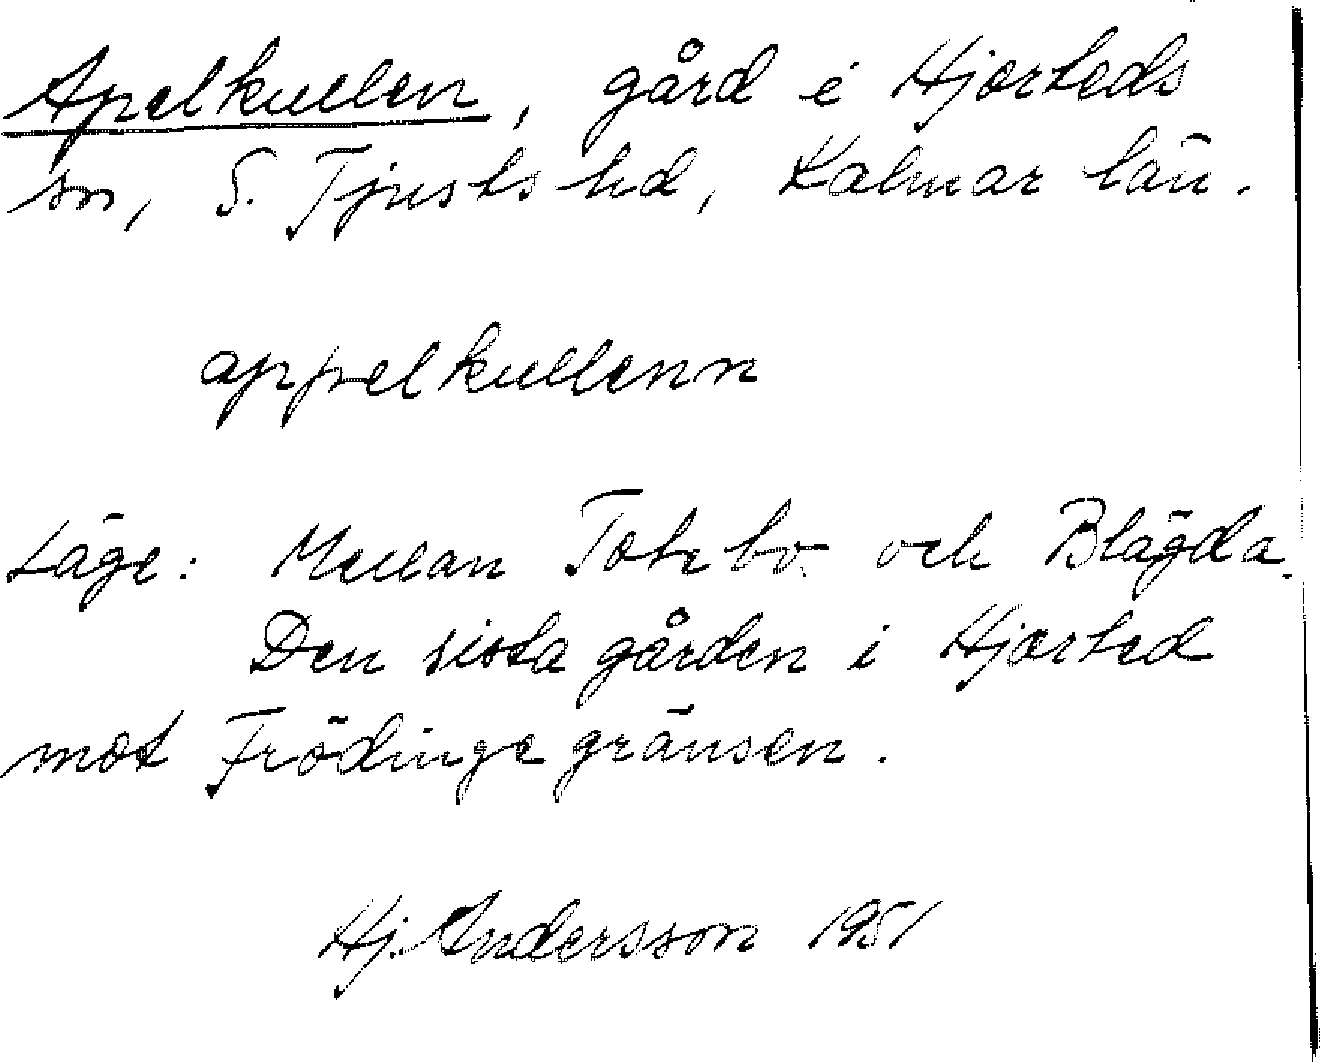 Apelkullen, gård i Hjorteds
sn, S. Tjusts hd, Kalmar län.
appelkullenn
Läge: Mellan Totebo och Blägda.
Den sista gården i Hjorted
mot Frödingegränsen.
Hj. Andersson 1951